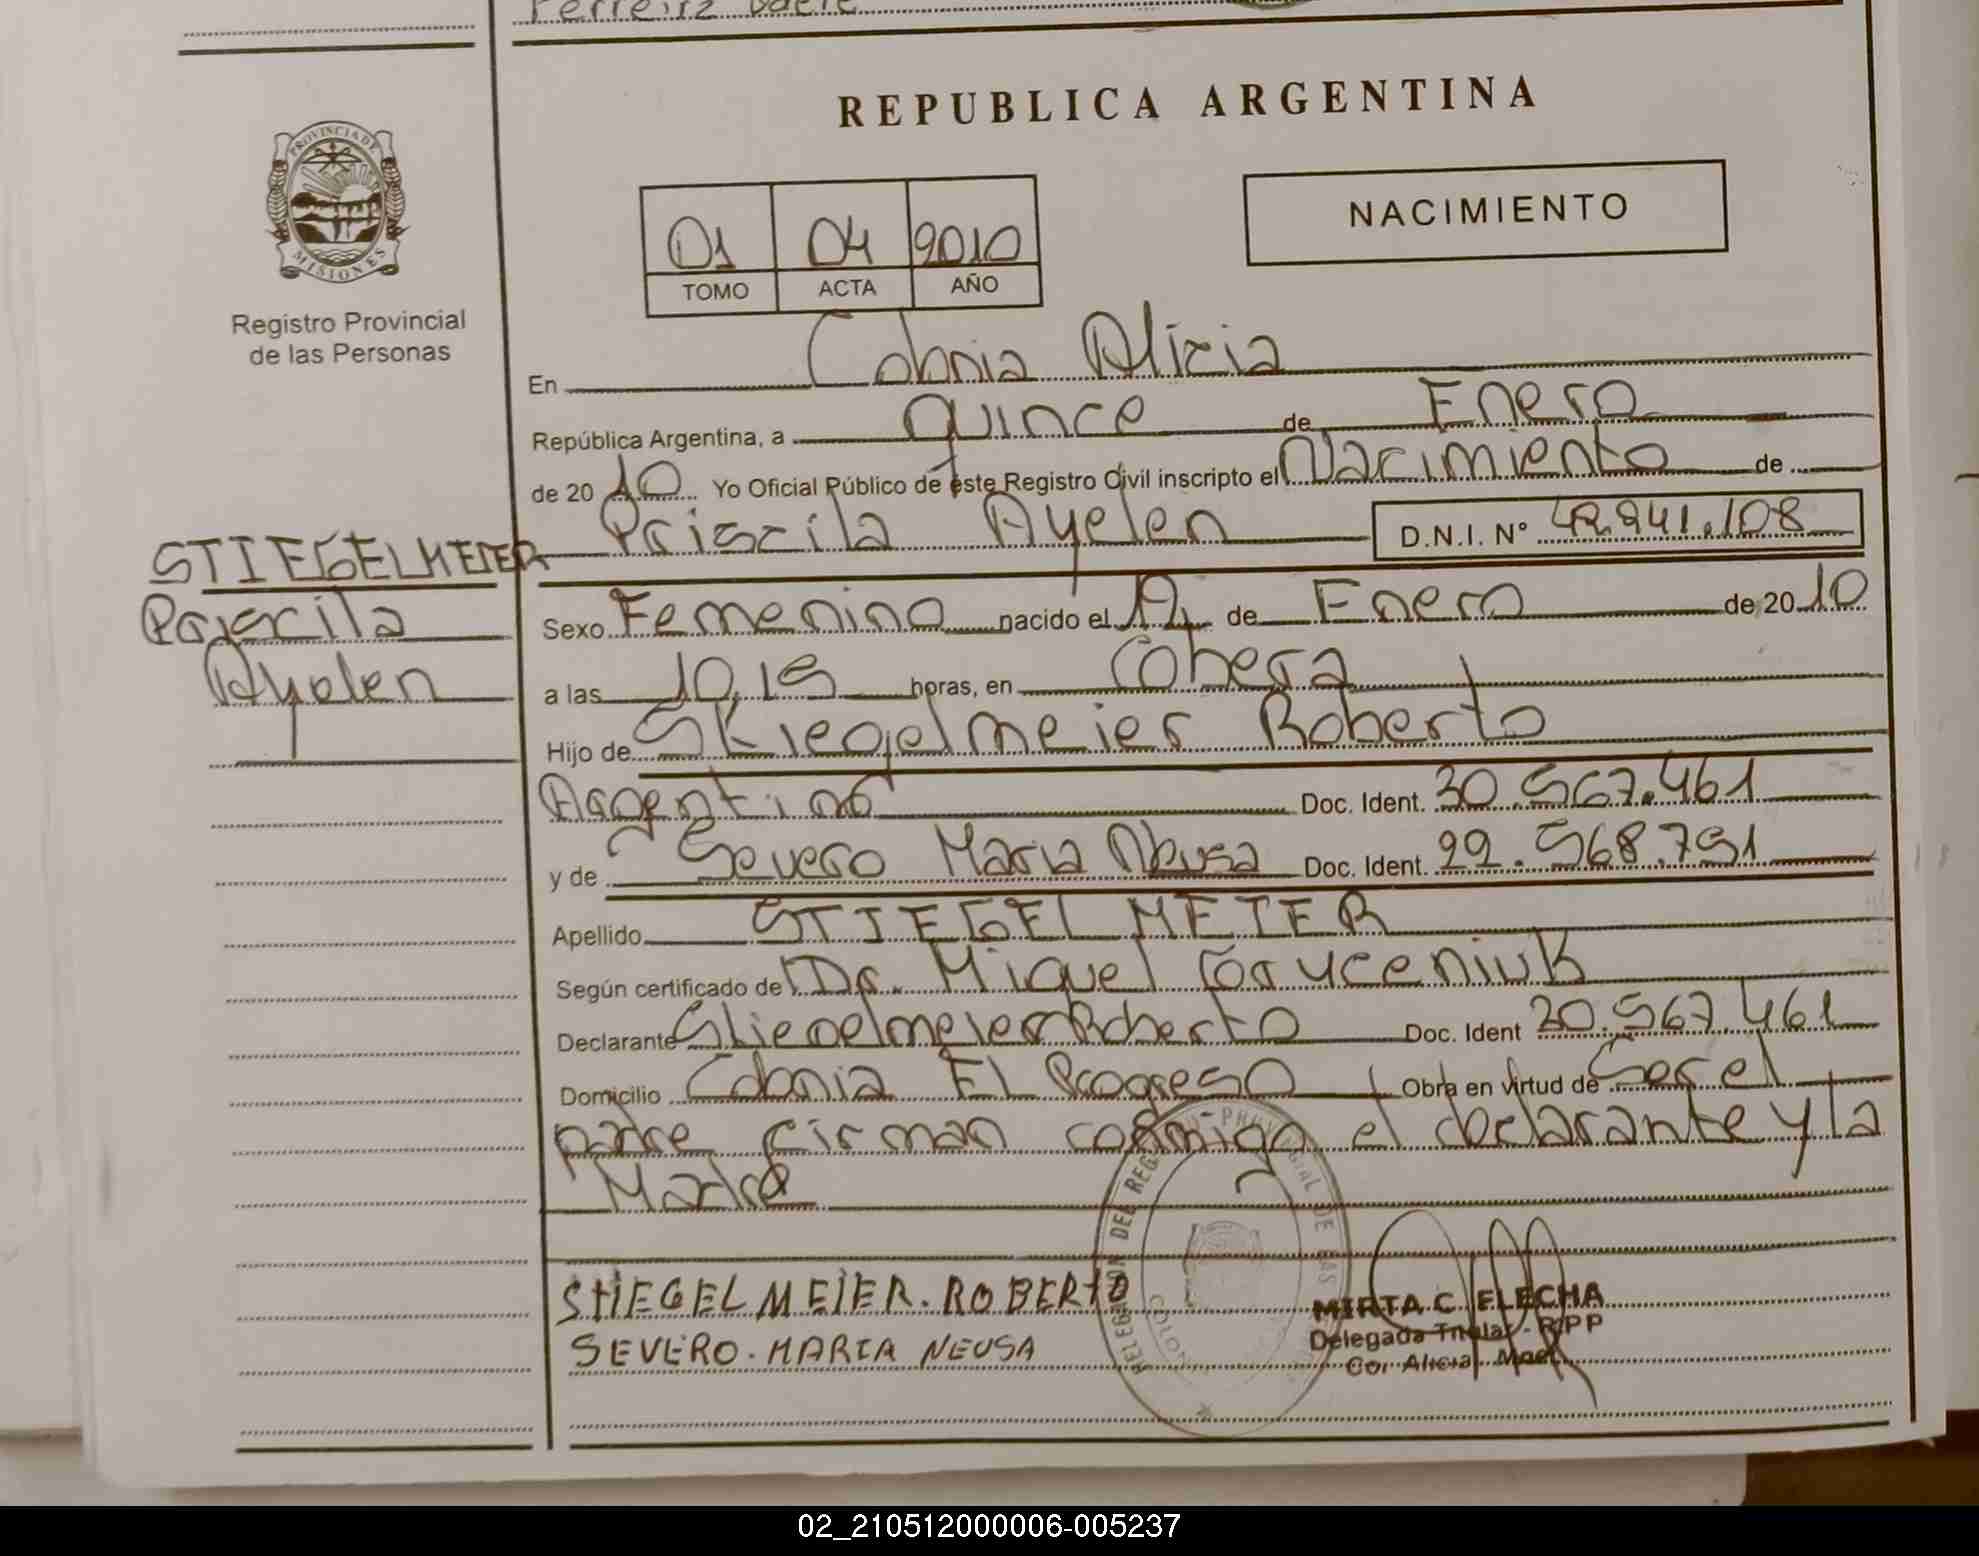 REPUBLICA ARGENTINA
PROVINCIA DE
MISIONES
Registro Provincial
de las Personas
01 04 2010
TOMO ACTA AÑO
NACIMIENTO
En Colonia Alicia
República Argentina, a quince de Enero
de 20 10 Yo Oficial Público de éste Registro Civil inscripto el Nacimiento de
Priscila Ayelen D.N.I. Nº
STIEGELMEIER
Priscila
Ayelen
Sexo Femenino nacido el de Enero de 20 10
a las 10,15 horas, en
Hijo de Stiegelmeier Roberto
Argentino Doc. Ident. 30.567.461
y de Severo Maria Neusa Doc. Ident. 22.568.791
Apellido STIEGELMEIER
Según certificado de Dr. Miguel
Declarante Stiegelmeier Roberto Doc. Ident 30.567.461
Domicilio Colonia El Progreso Obra en virtud de Ser el
padre firman conmigo el declarante y la
Madre
STIEGELMEIER. ROBERTO
SEVERO. MARIA NEUSA
MIRTA C. ELECHA
Delegada Titular - RPP
Col Alicia
02_210512000006-005237